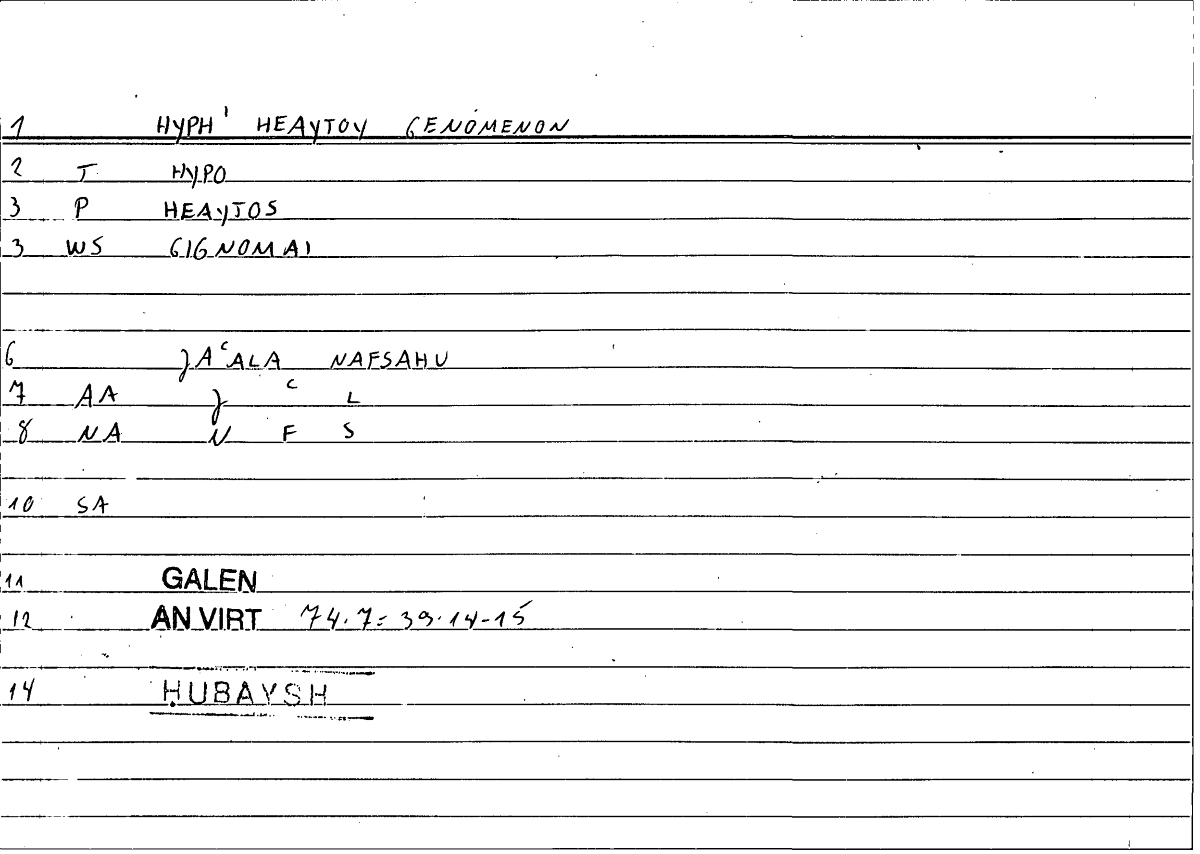 1 HYPH' HEAYTOY GENÓMENON
2 T HYPO
3 P HEAYTOS
3 WS GIGNOMAI
6 ǦAʿALA NAFSAHU
7 AA Ǧ ʿ L
8 NA N F S
10 SA
11 GALEN
12 AN VIRT 74.7 = 39.14-15
14 ḤUBAYSH